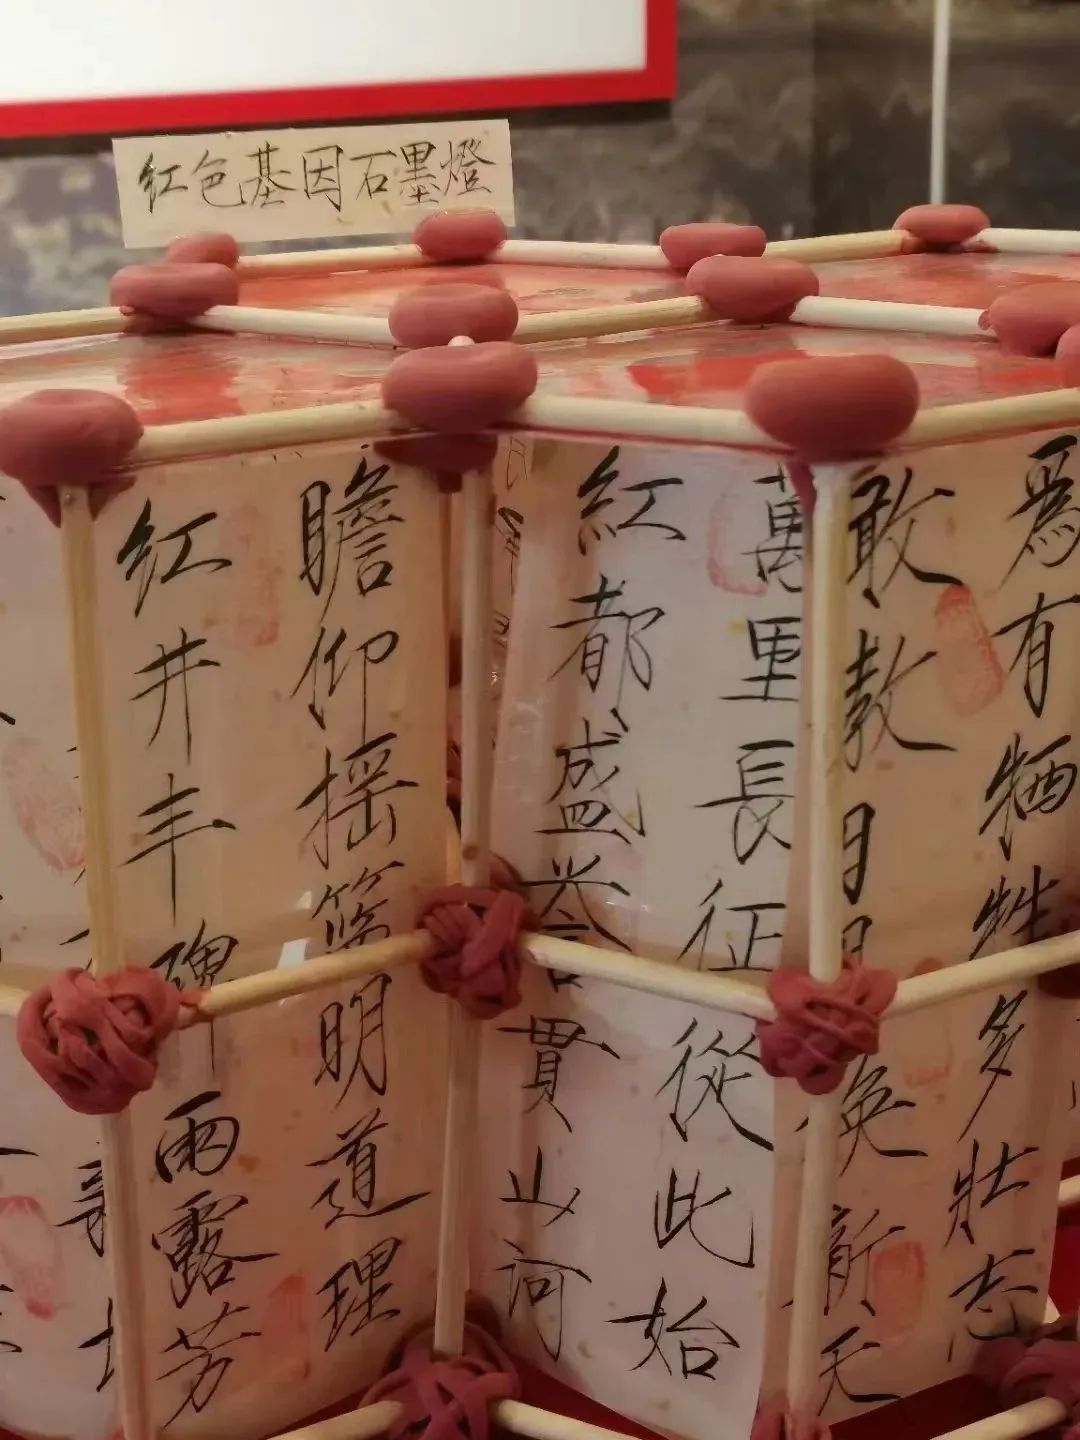 红色基因石墨燈
爲有牺牲多壯志
敢教日月換新天
萬里長征從此始
紅都盛誉貫山河
瞻仰摇篮明道理
红井丰碑雨露芳